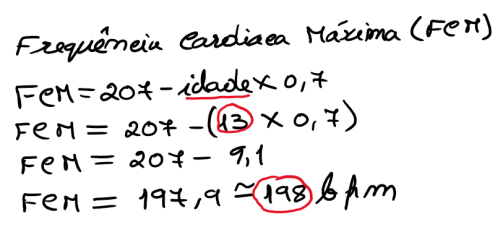 Frequência Cardíaca Máxima (FCM)
FCM = 207 - idade x 0,7
FCM = 207 - (13 x 0,7)
FCM = 207 - 9,1
FCM = 197,9 ≃ 198 bpm